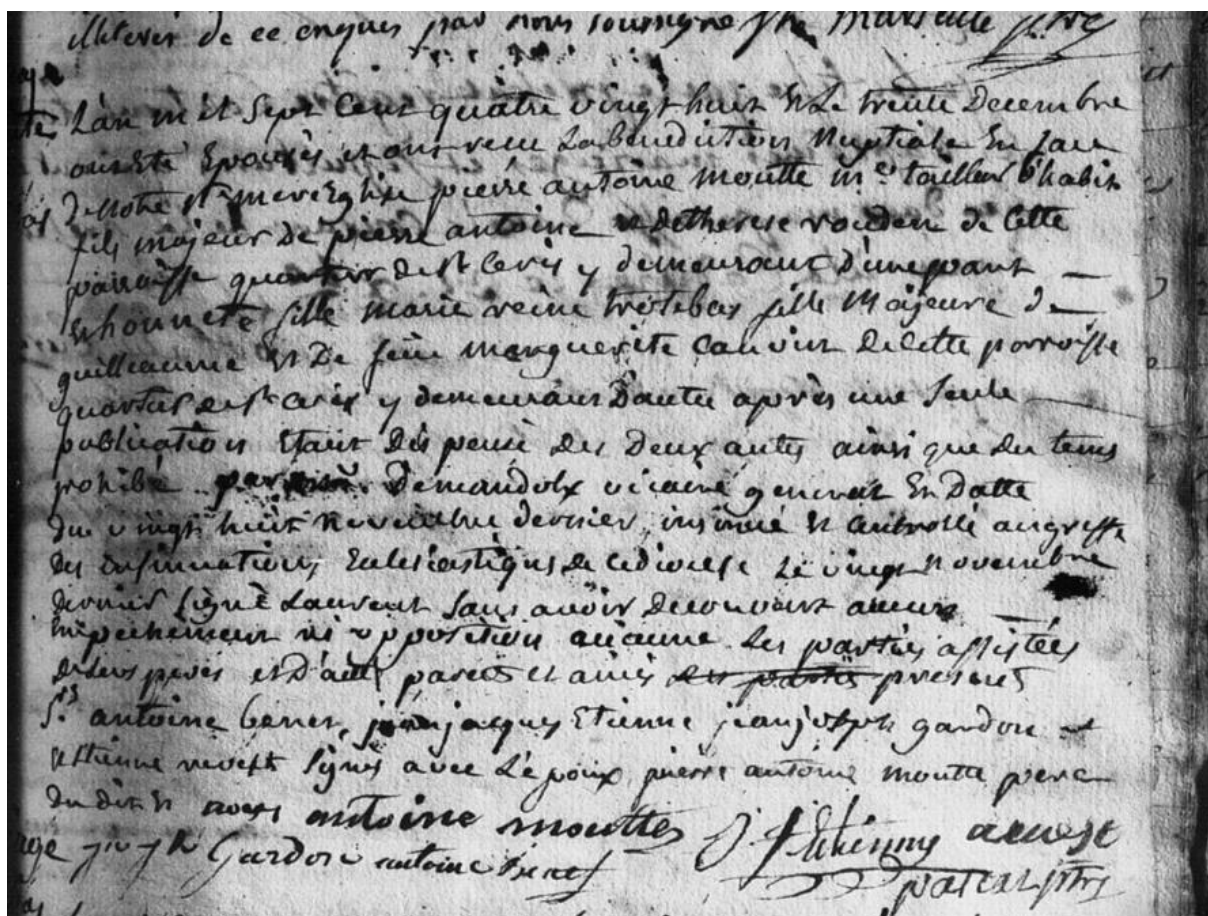 de ce enques par nous soussigné
L'an mil Sept Cent quatre vingt huit et Le trente Decembre
ont Eté Epousés et ont recu La benediction Nuptiale En face
De Notre Ste mere Eglise pierre antoine Moutte me tailleur d'habit
fils majeur de pierre antoine et de therese de Cette
parroisse quartier de St y demeurant D'une part
Et honnete fille Marie reine trotebas fille Majeure de
guilleaume Et De feüe Marguerite Cauvin de Cette parroisse
quartier de St y demeurant D'autre après une Seule
publication Etant dispensé des Deux autres ainsi que du tems
prohibé par Demandolx vicaire general En Datte
du vingt huit Novembre dernier, insinué et Controllé au greffe
des insinuations Eclesiastiques de Ce diocese Le vingt Novembre
dernier signé Laurent Sans avoir decouvert aucun
empechement ni opposition aucune Les parties assistées
de Leurs peres et d'autres parents et amis des parties presents
Srs antoine jean jacques Etienne jean joseph gardon
Et Etienne signés avec L'epoux pierre antoine moutte pere
du dit et nous antoine mouttes Etienne
Gardon antoine